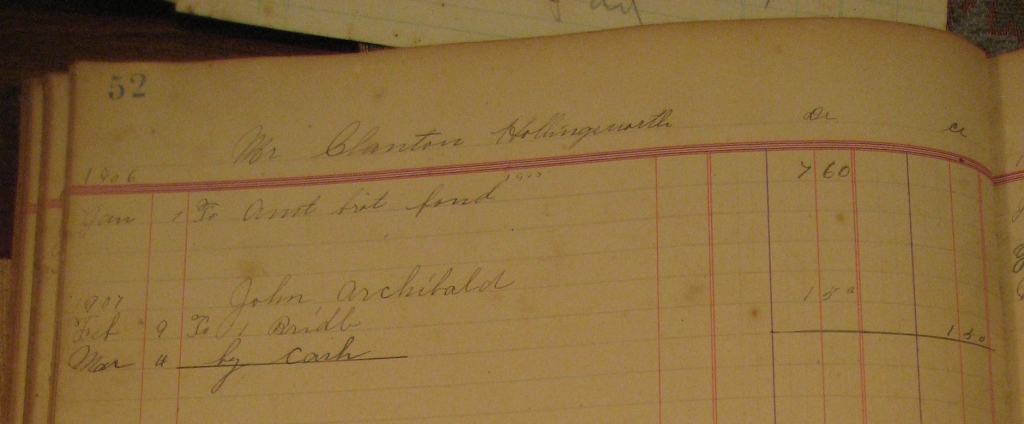 52
Mr Clanton Hollingsworth Dr Cr
1906
Jan 1 To Amt brt forwd 7 60
John Archibald
1907
Feb 9 To 1 Bridle 1 50
Mar " by Cash 1 50